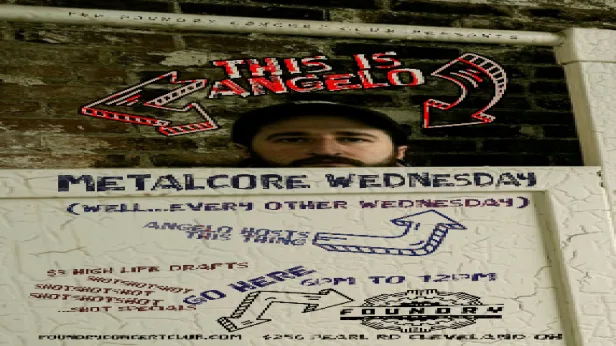 THE FOUNDRY CONCERT CLUB PRESENTS:
THIS IS
ANGELO
METALCORE WEDNESDAY
(WELL...EVERY OTHER WEDNESDAY)
ANGELO HOSTS
THIS THING
$3 HIGH LIFE DRAFTS
SHOTSHOTSHOT
SHOTSHOTSHOT
SHOTSHOTSHOT
...SHOT SPECIALS
GO HERE
6PM TO 12AM
FOUNDRY
FOUNDRYCONCERTCLUB.COM
PEARL RD CLEVELAND OH